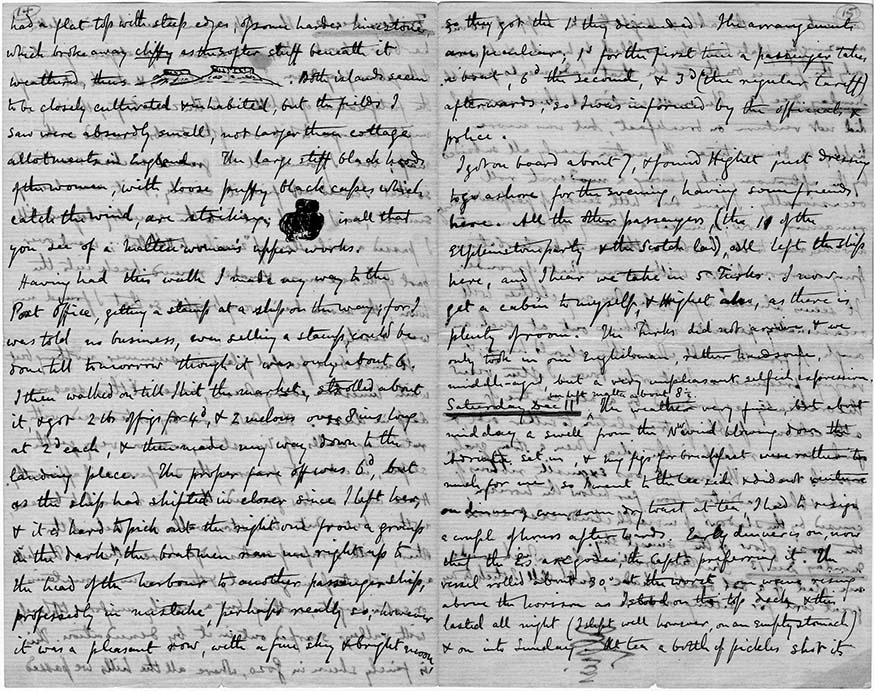 14
had a flat top with steep edges, of some harder limestone,
which broke away cliffy as the softer stuff beneath it
weathered thus. Both islands seem
to be closely cultivated & inhabited, but the fields I
saw were absurdly small, not larger than cottage
allotments in England. The large stiff black hoods
of the women, with loose puffy black capes which
catch the wind, are striking; is all that
you see of a Maltese woman's upper works.
Having had this walk I made my way to the
Post Office, getting a stamp at a shop on the way; for I
was told no business, even selling a stamp, could be
done till tomorrow though it was only about 6.
I then walked on till I hit the market, strolled about
it, & got 2 lbs of figs for 4d, & 2 melons over 8 ins long
at 2d each, & then made my way down to the
landing place. The proper fare off was 6d, but
as the ship had shifted in closer since I left her,
& it is hard to pick out the right one from a group
in the dark, the boatmen ran me right up to
the head of the harbour to another passenger ship,
professedly in mistake, perhaps really so; however
it was a pleasant row, with a fine sky & bright moon
15
so they got the 1s they demanded. The arrangements
are peculiar, 1s for the first time a passenger takes
a boat, 6d the second, & 3d (the regular tariff)
afterwards; so I was informed by the officials, &
police.
I got on board about 7, & found Highet just dressing
to go ashore for the evening having some friends
here. All the other passengers, (the 10 of the
party & the Scotch lad), all left the ship
here, and I hear we take in 5 Turks. I now
get a cabin to myself, & Highet also, as there is
plenty of room. The Turks did not arrive, & we
only took in one Englishman, rather handsome,
middle-aged but a very unpleasant selfish expression.
we left Malta about 8½.
Saturday, Dec 11 The weather very fine. But about
midday a swell from the Nd wind blowing down the
Adriatic set in, & my figs for breakfast were rather too
much for me, so I went to the lee side & did not venture
on dinner, & even some dry toast at tea, I had to resign
a couple of hours afterwards. Early dinner is on, now
that the Es are gone, the Capt preferring it. The
vessel rolled about 30° at the worst, one wave rising
above the horizon as I stood on the top deck, & this
lasted all night (I slept well however, on an empty stomach)
& on into Sunday. At tea a bottle of pickles shot its